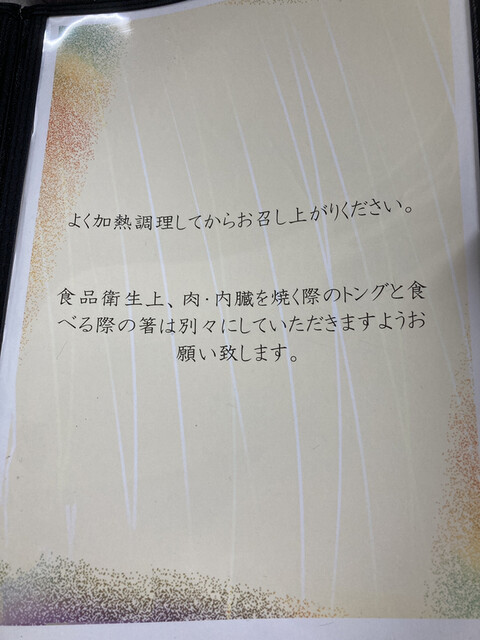 よく加熱調理してからお召し上がりください。
食品衛生上、肉・内臓を焼く際のトングと食
べる際の箸は別々にしていただきますようお
願い致します。